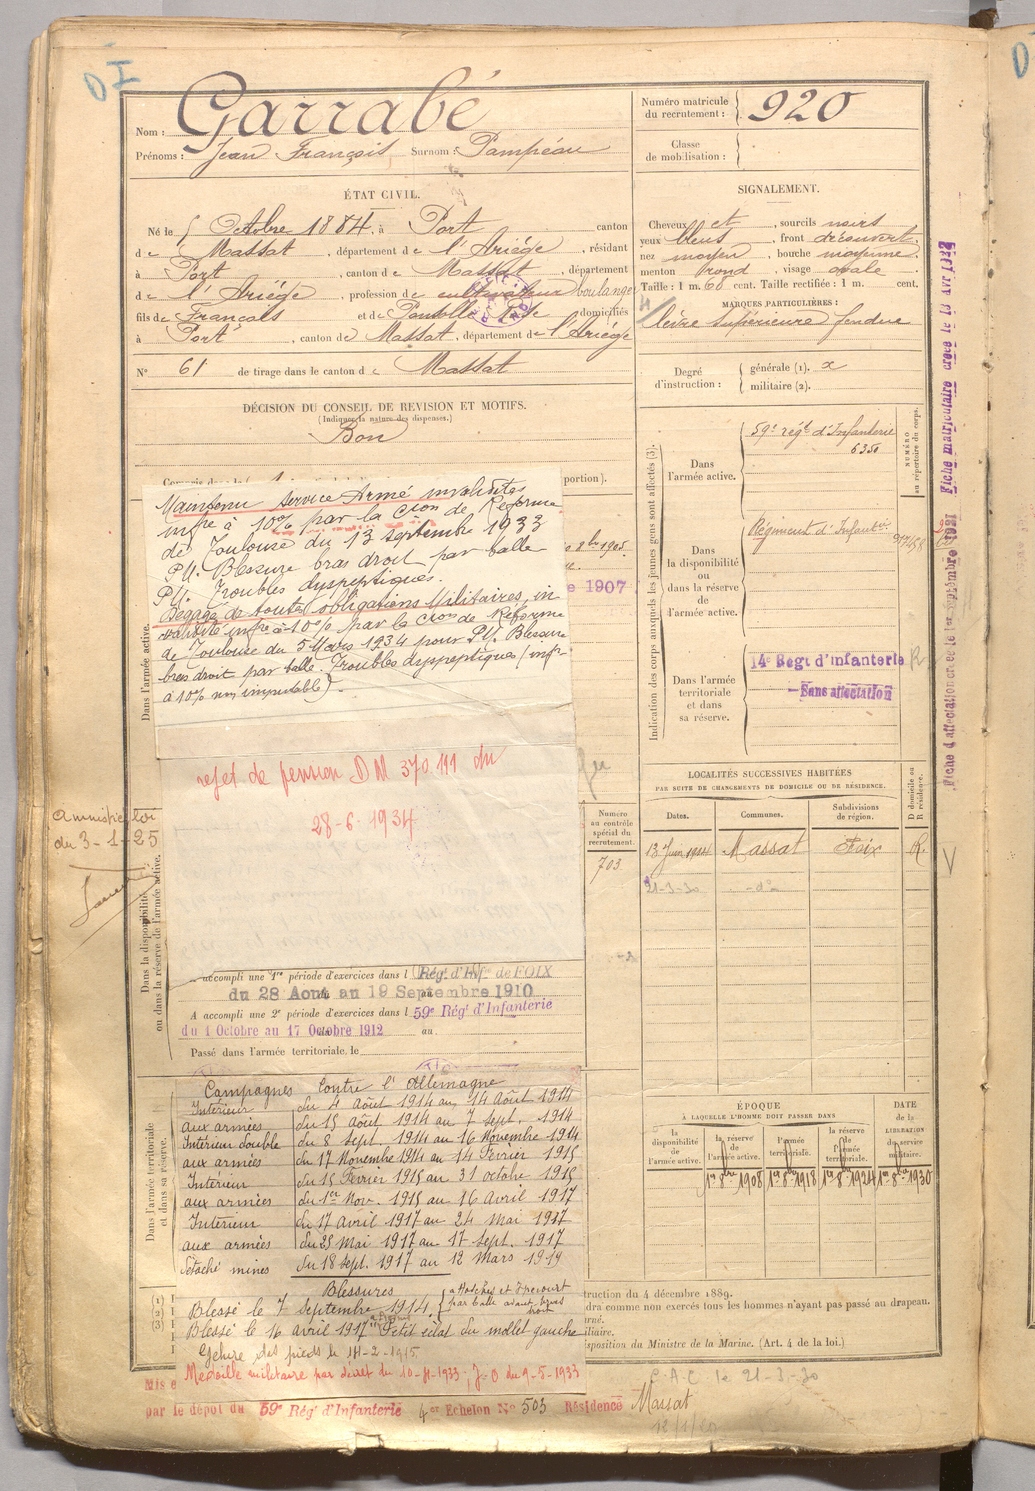 DI
Nom : Garrabé
Prénoms : Jean François Surnom : Pampéau
Numéro matricule du recrutement : 920
Classe de mobilisation :
ÉTAT CIVIL.
Né le 5 Octobre 1884, à Port canton
de Massat, département de l'Ariège, résidant
à Port, canton de Massat, département
de l'Ariège, profession de cultivateur boulanger
fils de François et de domiciliés
à Port, canton de Massat, département de l'Ariège
N° 61 de tirage dans le canton de Massat
DÉCISION DU CONSEIL DE REVISION ET MOTIFS.
(Indiquer la nature des dispenses.)
Bon
portion).
8bre 1905
1907
SIGNALEMENT.
Cheveux et, sourcils noirs
yeux bleus, front découvert.
nez moyen, bouche moyenne
menton rond, visage ovale
Taille : 1 m. 60 cent. Taille rectifiée : 1 m. cent.
MARQUES PARTICULIÈRES :
lèvre supérieure fendue
Degré d'instruction : générale (1). x
militaire (2).
Indication des corps auxquels les jeunes gens sont affectés (3).
NUMÉRO au répertoire du corps.
Dans l'armée active.
59e régt d'Infanterie
6350
Dans la disponibilité ou dans la réserve de l'armée active.
Régiment d'Infantie
Dans l'armée territoriale et dans sa réserve.
14e Regt d'infanterie
Sans affectation
Fiche matriculaire créée le
Fiche d'affectation créée le 1er septembre 1921
Dans l'armée active.
Maintenu service Armé invalidités
infre à 10% par la Cion de Réforme
de Toulouse du 13 septembre 1933
P.U. Blessure bras droit par balle
P.U. Troubles dyspeptiques.
Dégagé de toutes obligations Militaires, in
validité infre à 10% par la Cion de Réforme
de Toulouse du 5 Mars 1934 pour P.U. Blessure
bras droit par balle. Troubles dyspeptiques (infr
à 10% non imputable).
rejet de pension DM 370.111 du
28-6-1934
Amnistié loi
du 3-1-25
Dans la disponibilité ou dans la réserve de l'armée active.
Numéro au contrôle spécial du recrutement.
703
LOCALITÉS SUCCESSIVES HABITÉES
PAR SUITE DE CHANGEMENTS DE DOMICILE OU DE RÉSIDENCE.
Dates. Communes. Subdivisions de région. D domicile ou R résidence.
13 Juin 1914 Massat Foix R.
21-3-30 -do-
accompli une 1re période d'exercices dans l Régt d'Infie de FOIX
du 28 Aout au 19 Septembre 1910
A accompli une 2e période d'exercices dans l 59e Régt d'Infanterie
du 1 Octobre au 17 Octobre 1912 au
Passé dans l'armée territoriale, le
Dans l'armée territoriale et dans sa réserve.
Campagnes Contre l'Allemagne
Intérieur du 4 Août 1914 au 14 Août 1914
aux armées du 15 Août 1914 au 7 Sept. 1914
Intérieur double du 8 Sept. 1914 au 16 Novembre 1914
aux armées du 17 Novembre 1914 au 14 Février 1915
Intérieur du 15 Février 1915 au 31 octobre 1915
aux armées du 1er Nov. 1915 au 16 Avril 1917
Intérieur du 17 avril 1917 au 24 Mai 1917
aux armées du 25 Mai 1917 au 17 Sept. 1917
Détaché mines du 18 Sept. 1917 au 12 Mars 1919
Blessures
Blessé le 7 Septembre 1914
par balle avant bras droit
Blessé le 16 avril 1917 Petit éclat du mollet gauche
Gelure des pieds le 14-2-1915
Médaille militaire par décret du 10-4-1933; J.O du 9-5-1933
ÉPOQUE
À LAQUELLE L'HOMME DOIT PASSER DANS
la disponibilité de l'armée active.
la réserve de l'armée active.
l'armée territoriale.
la réserve de l'armée territoriale.
DATE de la LIBÉRATION du service militaire.
1er 8bre 1908 1er 8bre 1918 1er 8bre 1924 1er 8bre 1930
(1)
(2)
(3)
truction du 4 décembre 1889.
dra comme non exercés tous les hommes n'ayant pas passé au drapeau.
isposition du Ministre de la Marine. (Art. 4 de la loi.)
P.A.C le 21-3-30
Mis e
par le dépôt du 59e Régt d'Infanterie 4er Echelon No 503 Résidence Massat